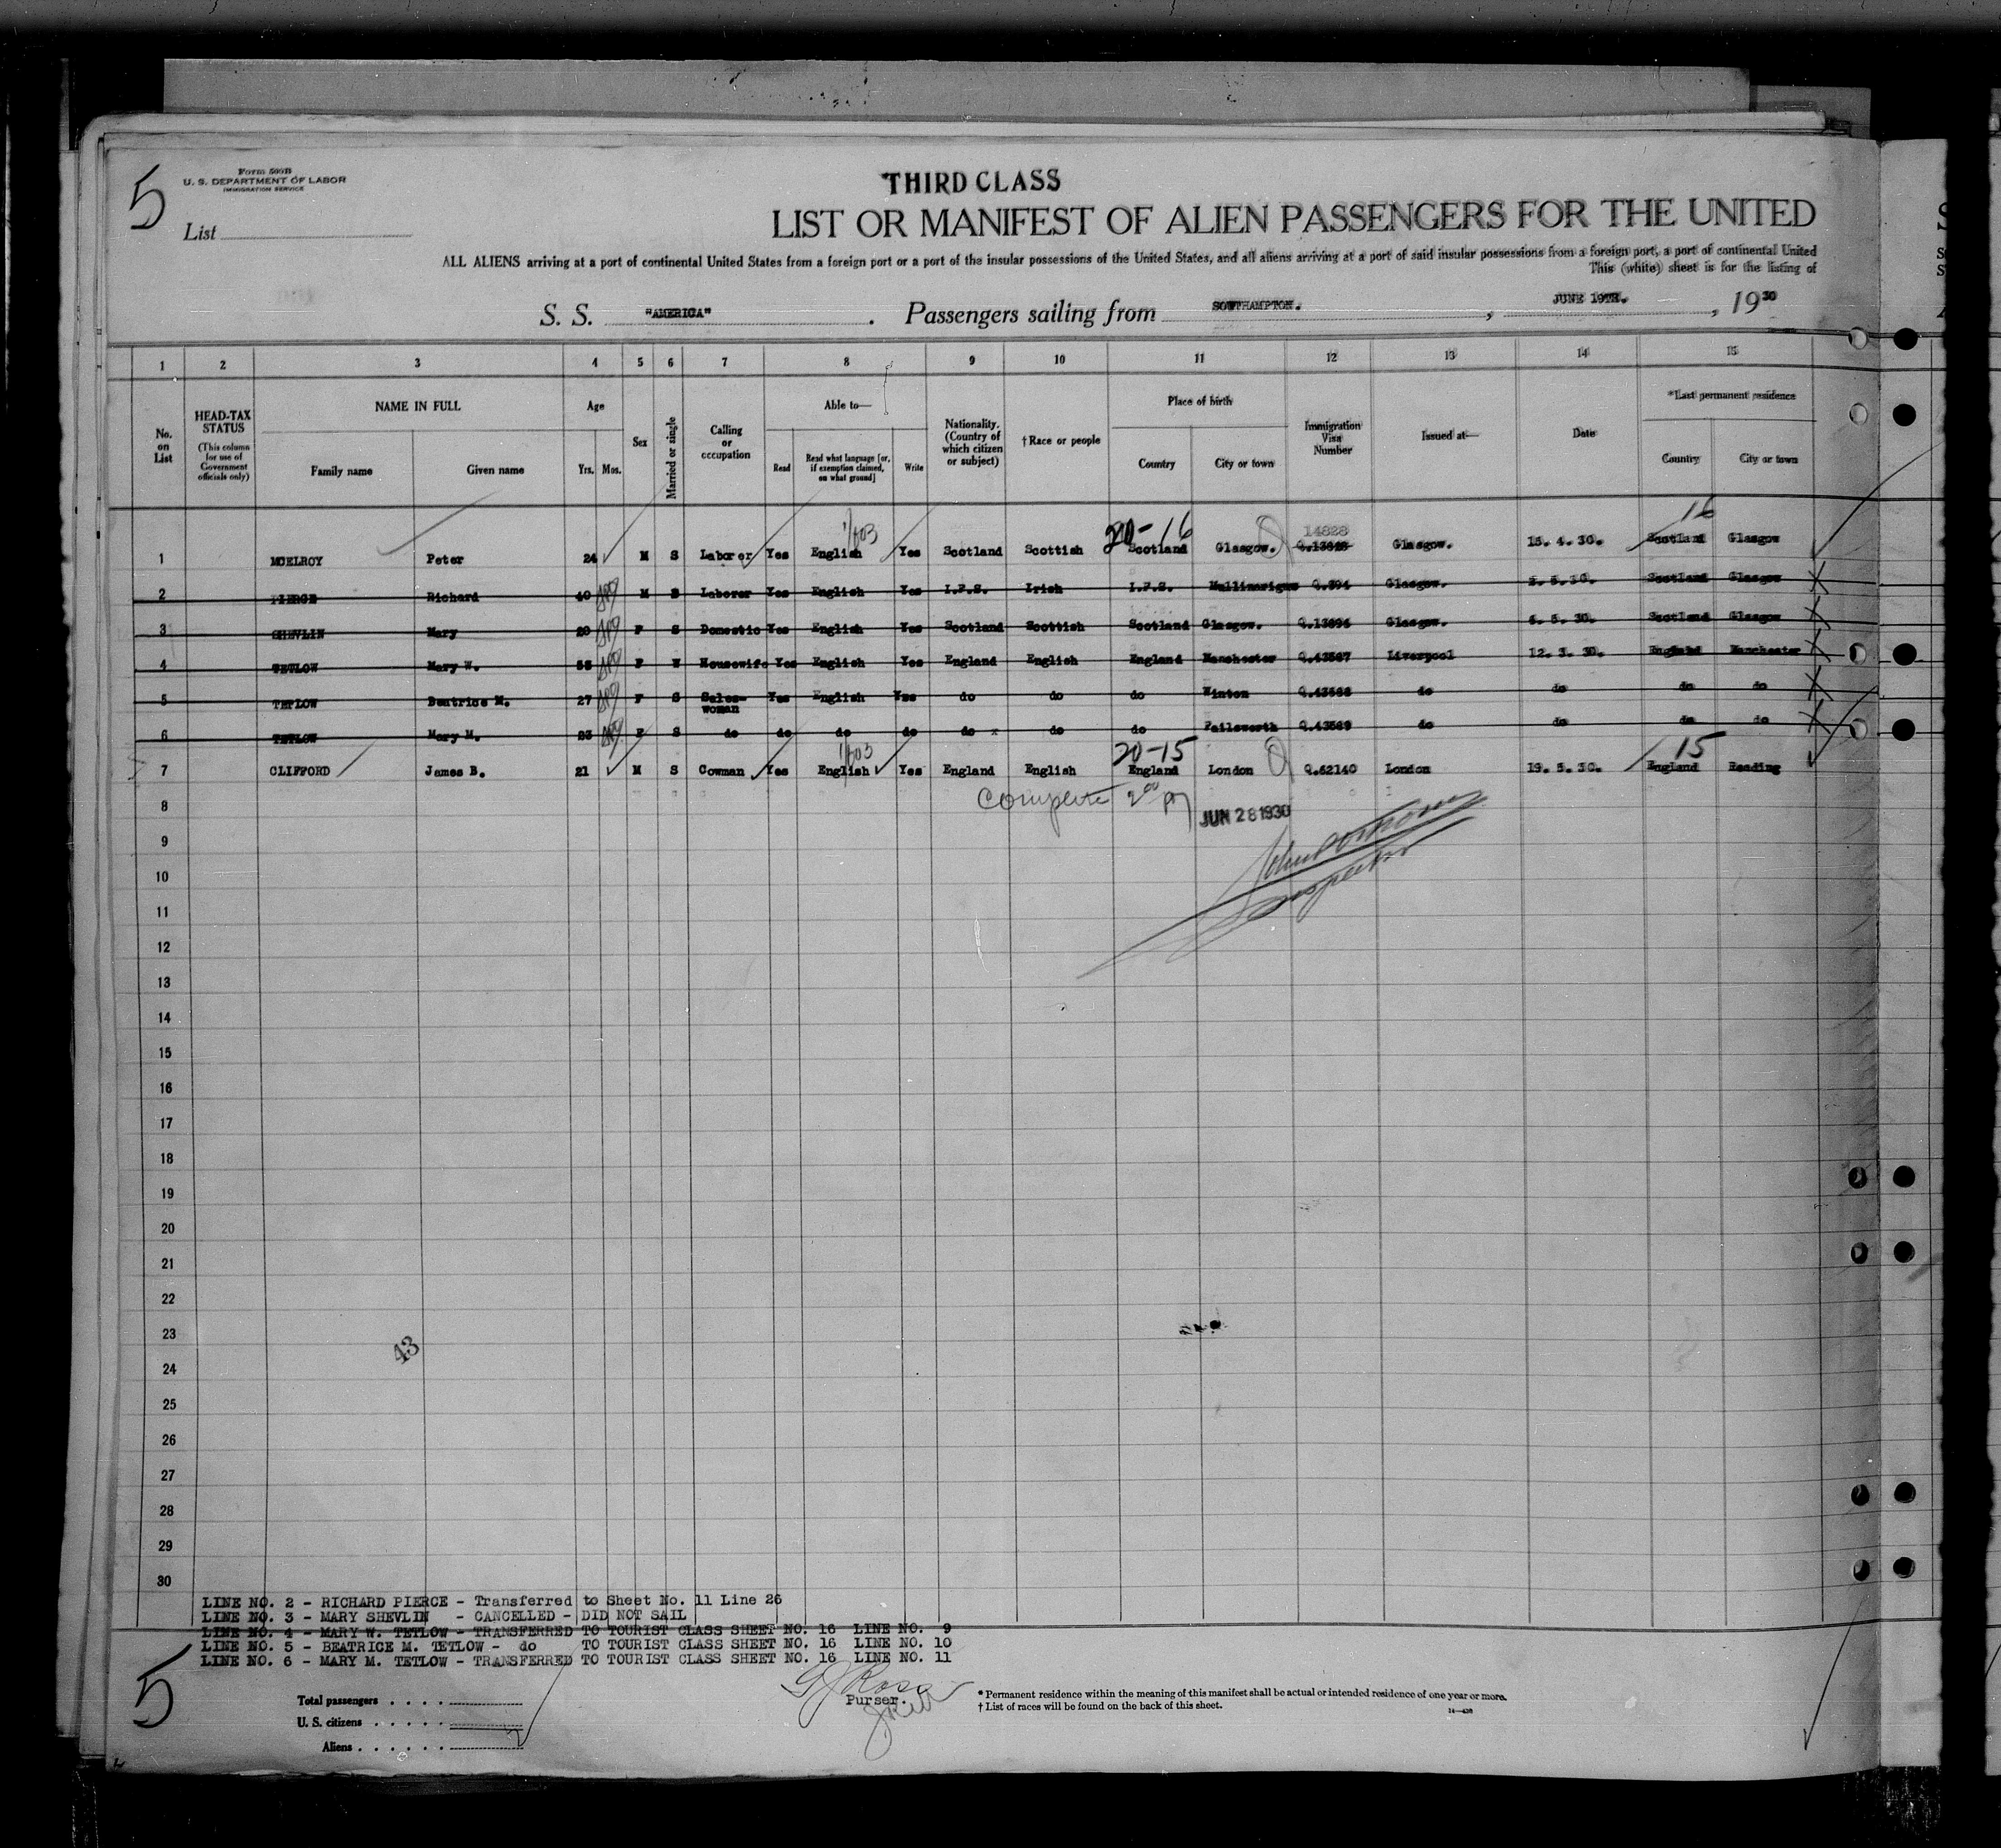 5
Form 500B
U. S. DEPARTMENT OF LABOR
IMMIGRATION SERVICE
List
THIRD CLASS
LIST OR MANIFEST OF ALIEN PASSENGERS FOR THE UNITED
ALL ALIENS arriving at a port of continental United States from a foreign port or a port of the insular possessions of the United States, and all aliens arriving at a port of said insular possessions from a foreign port, a port of continental United
This (white) sheet is for the listing of
S. S. "AMERICA" . Passengers sailing from SOUTHAMPTON. , JUNE 19TH. , 1930
1 2 3 4 5 6 7 8 9 10 11 12 13 14 15
No. on List
HEAD-TAX STATUS (This column for use of Government officials only)
NAME IN FULL
Family name Given name
Age
Yrs. Mos.
Sex
Married or single
Calling or occupation
Able to—
Read Read what language [or, if exemption claimed, on what ground] Write
Nationality. (Country of which citizen or subject)
† Race or people
Place of birth
Country City or town
Immigration Visa Number
Issued at—
Date
*Last permanent residence
Country City or town
20-16 14828 16
1 MCELROY Peter 24 M S Laborer Yes English Yes Scotland Scottish Scotland Glasgow. Glasgow. 15. 4. 30. Scotland Glasgow
2 PIERCE Richard 40 M S Laborer Yes English Yes I.F.S. Irish I.F.S. Q.394 Glasgow. Scotland Glasgow
3 SHEVLIN Mary F S Domestic Yes English Yes Scotland Scottish Scotland Glasgow. Glasgow. Scotland Glasgow
4 TETLOW Mary W. F W Housewife Yes English Yes England English England Manchester Q.43567 Liverpool 12. 3. 30. England Manchester
5 TETLOW Beatrice M. 27 F S Sales-woman Yes English Yes do do do Winton Q.43568 do do do do
6 TETLOW Mary M. 23 F S do do do do do do do Failsworth Q.43569 do do do do
20-15 15
7 CLIFFORD James B. 21 M S Cowman Yes English Yes England English England London Q.62140 London 19. 5. 30. England Reading
8 Complete
JUN 28 1930
9
10 Inspector
11
12
13
14
15
16
17
18
19
20
21
22
23
43
24
25
26
27
28
29
30
LINE NO. 2 - RICHARD PIERCE - Transferred to Sheet No. 11 Line 26
LINE NO. 3 - MARY SHEVLIN - CANCELLED - DID NOT SAIL
LINE NO. 4 - MARY W. TETLOW - TRANSFERRED TO TOURIST CLASS SHEET NO. 16 LINE NO. 9
LINE NO. 5 - BEATRICE M. TETLOW - do TO TOURIST CLASS SHEET NO. 16 LINE NO. 10
LINE NO. 6 - MARY M. TETLOW - TRANSFERRED TO TOURIST CLASS SHEET NO. 16 LINE NO. 11
5
Total passengers
U. S. citizens
Aliens
Purser.
* Permanent residence within the meaning of this manifest shall be actual or intended residence of one year or more.
† List of races will be found on the back of this sheet.